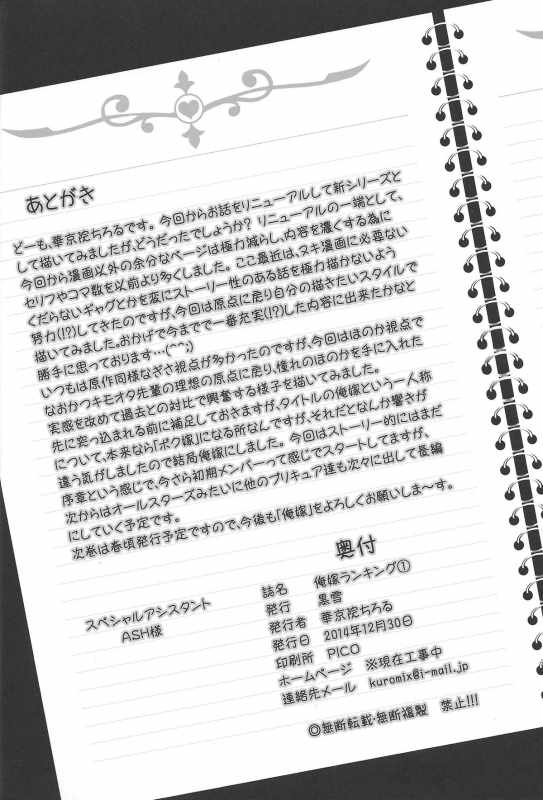 あとがき
どーも、華京淀ちろるです。今回からお話をリニューアルして新シリーズと
して描いてみましたが、どうだったでしょうか？リニューアルの一端として、
今回から漫画以外の余分なページは極力減らし、内容を濃くする為に
セリフやコマ数を以前より多くしました。ここ最近は、ヌキ漫画に必要ない
くだらないギャグとかを変にストーリー性のある話を極力描かないよう
努力(!?)してきたのですが、今回は原点に戻り自分の描きたいスタイルで
描いてみました。おかげで今までで一番充実(!?)した内容に出来たかなと
勝手に思っております…(^^;)
いつもは原作同様なぎさ視点が多かったのですが、今回はほのか視点で
なおかつキモオタ先輩の理想の原点に戻り、憧れのほのかを手に入れた
実感を改めて過去との対比で興奮する様子を描いてみました。
先に突っ込まれる前に補足しておきますが、タイトルの俺嫁という一人称
について、本来なら「ボク嫁」になる所なんですが、それだとなんか響きが
違う気がしましたので結局俺嫁にしました。今回はストーリー的にはまだ
序章という感じで、今さら初期メンバーって感じでスタートしてますが、
次からはオールスターズみたいに他のプリキュア達も次々に出して長編
にしていく予定です。
次巻は春頃発行予定ですので、今後も「俺嫁」をよろしくお願いしま〜す。
スペシャルアシスタント
ASH様
奥付
誌名 俺嫁ランキング①
発行 黒雪
発行者 華京淀ちろる
発行日 2014年12月30日
印刷所 PICO
ホームページ ※現在工事中
連絡先メール kuromix@i-mail.jp
◎無断転載・無断複製 禁止!!!